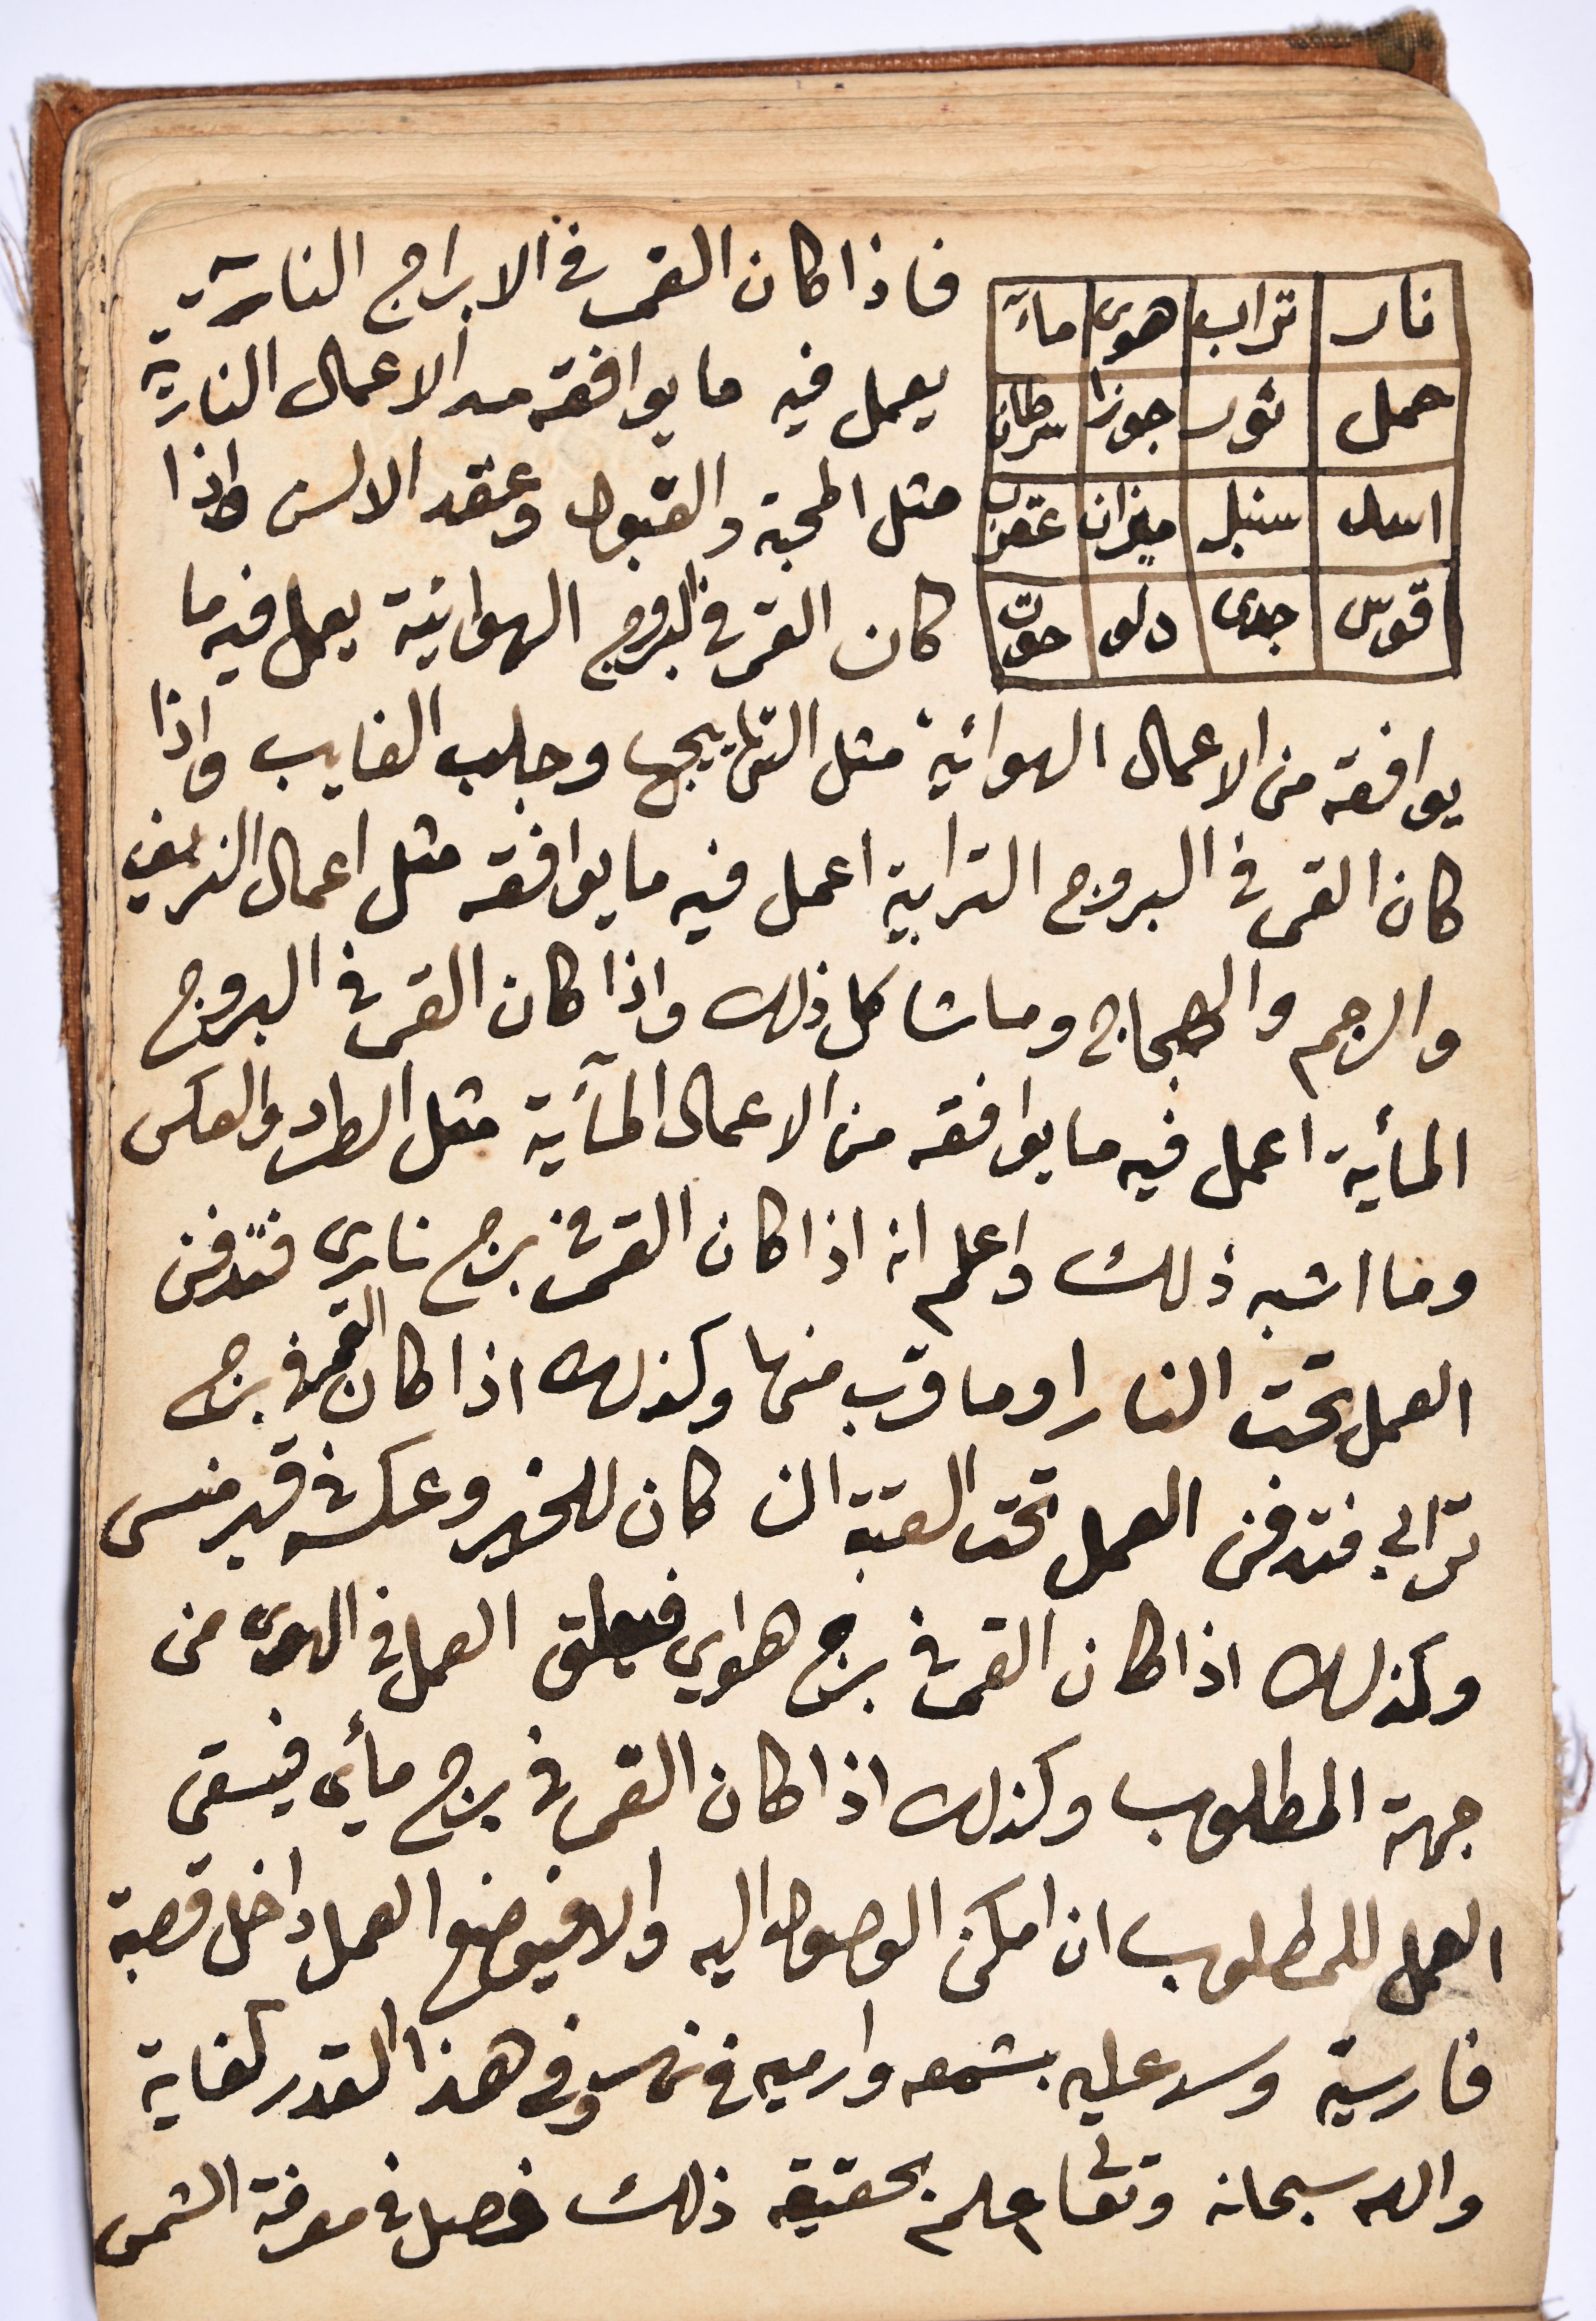 نار تراب هوى مآء
حمل ثور جوزا سرطان
اسد سنبل ميزان عقرب
قوس جدى دلو حوت
فاذا كان القمر في الابراج النارية
يعمل فيه ما يوافقه من الاعمال النارية
مثل المحبة والقبول وعقد الالسن واذا
كان القمر في البروج الهوائية يعمل فيه ما
يوافقه من الاعمال الهوائية مثل التهاييج وجلب الغايب واذا
كان القمر في البروج الترابية اعمل فيه ما يوافقه مثل اعمال النزيف
والرجم والهجاج وما شاكل ذلك واذا كان القمر في البروج
المأية اعمل فيه ما يوافقه من الاعمال المآئية مثل الطرد والعكس
وما اشبه ذلك واعلم انه اذا كان القمر في برج ناري فتدفن
العمل تحت النار او ما قرب منها وكذلك اذا كان القمر في برج
ترابي فتدفن العمل تحت العتبة ان كان للخير وعكسه في قبر منسى
وكذلك اذا كان القمر في برج هواي فيعلق العمل في الهوى من
جهة المطلوب وكذلك اذا كان القمر في برج مأي فيسقى
العمل للمطلوب ان امكن الوصول اليه والا فيوضع العمل داخل قصبة
فارسية وسد عليه بشمعه وارميه في نهر وفي هذا القدر كفاية
والله سبحانه وتعالى اعلم بحقيقه ذلك فصل في معرفة الشمس